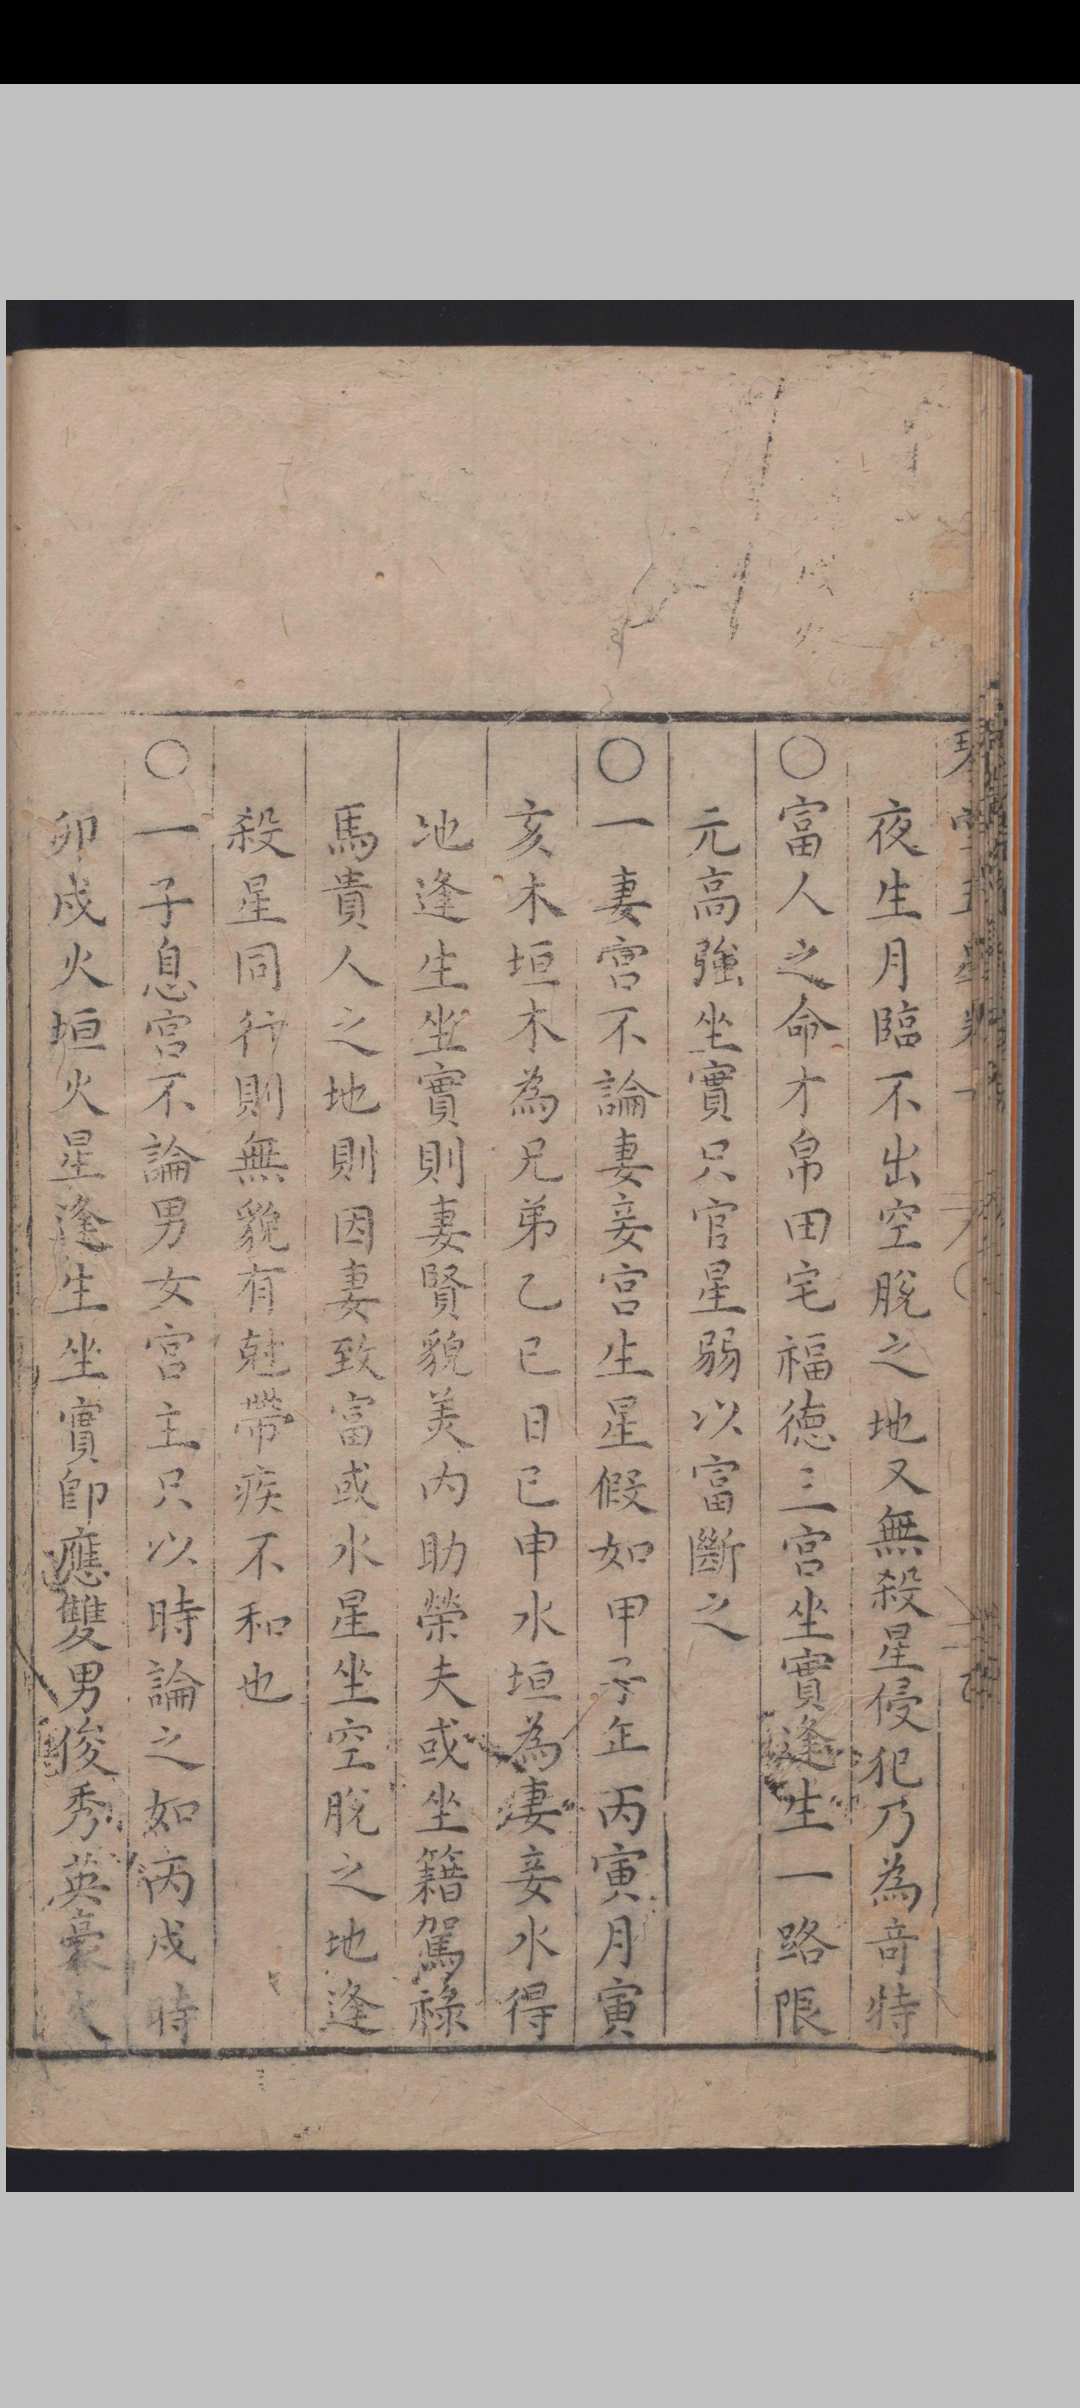 夜生月臨不出空脫之地又無殺星侵犯乃為奇特
○富人之命才帛田宅福德三宮坐實逢生一路限
元高強坐實只官星弱以富斷之
○一妻宮不論妻妾宮生星假如甲子年丙寅月寅
亥木垣木為兄弟乙巳日巳申水垣為妻妾水得
地逢生坐實則妻賢貌美內助榮夫或坐籍駕祿
馬貴人之地則因妻致富或水星坐空脫之地逢
殺星同行則無貌有尅帶疾不和也
○一子息宮不論男女宮主只以時論之如丙戌時
卯戌火垣火星逢生坐實卽應雙男俊秀英豪火